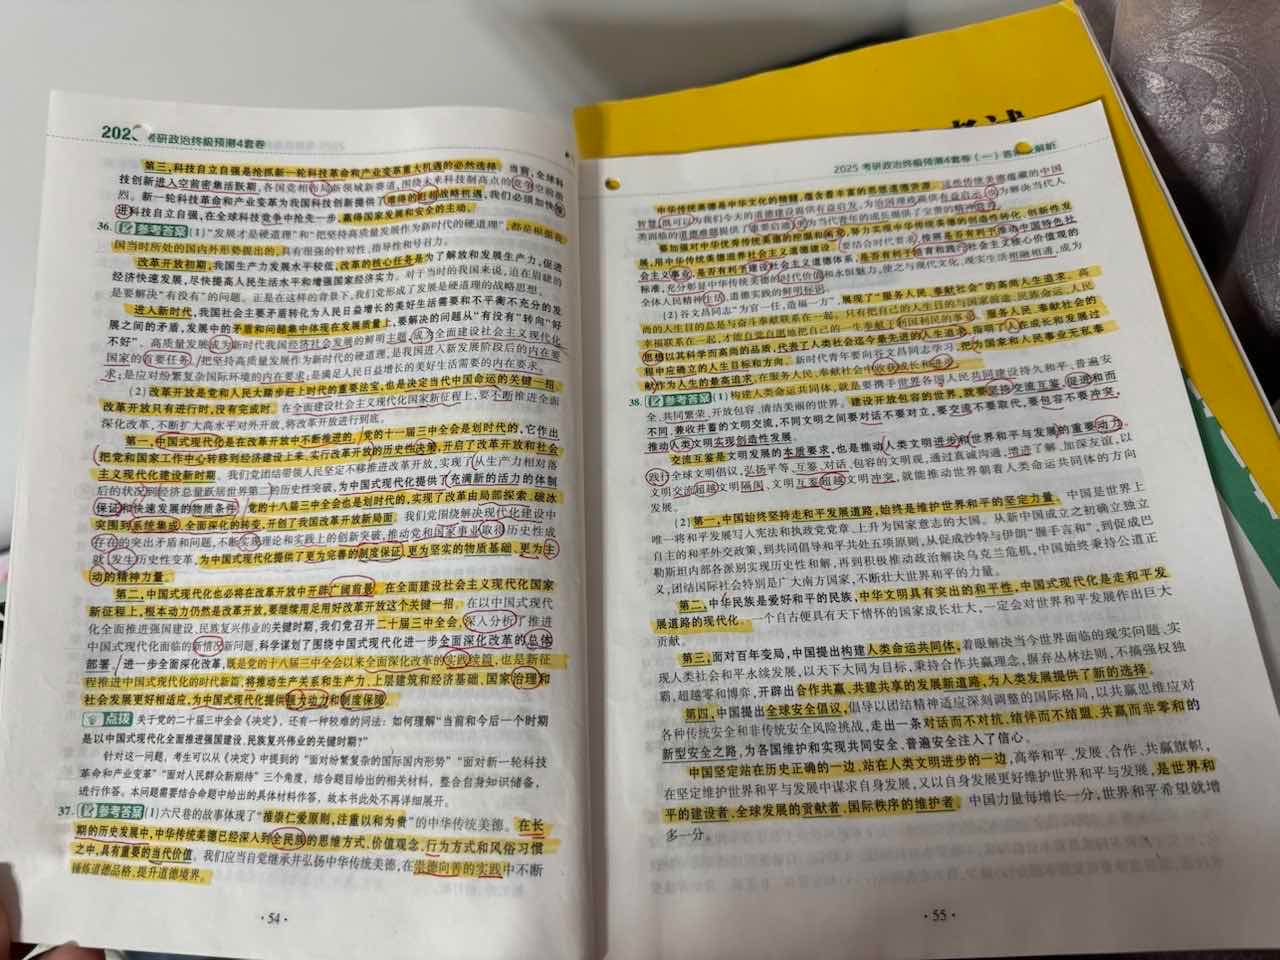 2025 考研政治终极预测4套卷
第三,科技自立自强是抢抓新一轮科技革命和产业变革重大机遇的必然选择。当前,全球科
技创新进入空前密集活跃期,各国竞相布局新领域新赛道,围绕未来科技制高点的竞争空前激
烈。新一轮科技革命和产业变革为我国科技创新提供了难得的和战略机遇,我们必须加快推
进科技自立自强,在全球科技竞争中抢先一步,赢得国家发展和安全的主动。
36. 参考答案 (1)“发展才是硬道理”和“把坚持高质量发展作为新时代的硬道理”,都是根据我
国当时所处的国内外形势提出的,具有很强的针对性、指导性和号召力。
改革开放初期,我国生产力发展水平较低,改革的核心任务是为了解放和发展生产力,促进
经济快速发展,尽快提高人民生活水平和增强国家经济实力。对于当时的我国来说,迫在眉睫的
是要解决“有没有”的问题。正是在这样的背景下,我们党形成了发展是硬道理的战略思想。
进入新时代,我国社会主要矛盾转化为人民日益增长的美好生活需要和不平衡不充分的发
展之间的矛盾,发展中的矛盾和问题集中体现在发展质量上,要解决的问题从“有没有”转向“好
不好”。高质量发展成为新时代我国经济社会发展的鲜明主题,成为全面建设社会主义现代化
国家的首要任务,把坚持高质量发展作为新时代的硬道理,是我国进入新发展阶段后的内在要
求;是应对纷繁复杂国际环境的内在要求;是满足人民日益增长的美好生活需要的内在要求。
(2)改革开放是党和人民大踏步赶上时代的重要法宝,也是决定当代中国命运的关键一招,
改革开放只有进行时,没有完成时。在全面建设社会主义现代化国家新征程上,要不断推进全面
深化改革,不断扩大高水平对外开放,将改革开放进行到底。
第一,中国式现代化是在改革开放中不断推进的,党的十一届三中全会是划时代的,它作出
把党和国家工作中心转移到经济建设上来、实行改革开放的历史性决策,开启了改革开放和社会
主义现代化建设新时期。我们党团结带领人民坚定不移推进改革开放,实现了从生产力相对落
后的状况到经济总量跃居世界第二的历史性突破,为中国式现代化提供了充满新的活力的体制
保证和快速发展的物质条件。党的十八届三中全会也是划时代的,实现了改革由局部探索、破冰
突围到系统集成、全面深化的转变,开创了我国改革开放新局面。我们党围绕解决现代化建设中
存在的突出矛盾和问题,不断实现理论和实践上的创新突破,推动党和国家事业取得历史性成
就、发生历史性变革,为中国式现代化提供了更为完善的制度保证、更为坚实的物质基础、更为主
动的精神力量。
第二,中国式现代化也必将在改革开放中开辟广阔前景。在全面建设社会主义现代化国家
新征程上,根本动力仍然是改革开放,要继续用足用好改革开放这个关键一招。在以中国式现代
化全面推进强国建设、民族复兴伟业的关键时期,我们党召开二十届三中全会,深入分析了推进
中国式现代化面临的新情况新问题,科学谋划了围绕中国式现代化进一步全面深化改革的总体
部署,进一步全面深化改革,既是党的十八届三中全会以来全面深化改革的实践续篇,也是新征
程推进中国式现代化的时代新篇,将推动生产关系和生产力、上层建筑和经济基础、国家治理和
社会发展更好相适应,为中国式现代化提供强大动力和制度保障。
点拨 关于党的二十届三中全会《决定》,还有一种较难的问法:如何理解“当前和今后一个时期
是以中国式现代化全面推进强国建设、民族复兴伟业的关键时期?”
针对这一问题,考生可以从《决定》中提到的“面对纷繁复杂的国际国内形势”“面对新一轮科技
革命和产业变革”“面对人民群众新期待”三个角度,结合题目给出的相关材料,整合自身知识储备,
进行作答。本问题需要结合命题中给出的具体材料作答,故本书此处不再详细展开。
37. 参考答案 (1)六尺巷的故事体现了“推崇仁爱原则,注重以和为贵”的中华传统美德。在长
期的历史发展中,中华传统美德已经深入到全民族的思维方式、价值观念、行为方式和风俗习惯
之中,具有重要的当代价值。我们应当自觉继承并弘扬中华传统美德,在崇德向善的实践中不断
锤炼道德品格,提升道德境界。
·54·
2025 考研政治终极预测4套卷(一)答案 解析
中华传统美德是中华文化的精髓,蕴含着丰富的思想道德资源。这些传统美德蕴藏的中国
智慧,既可为我们今天的道德建设提供有益启发,为治国理政提供有益启示,也为解决当代人
类面临的道德难题提供了重要启迪,
要加强对中华优秀传统美德的挖掘和阐发,努力实现中华传统美德的创造性转化、创新性发
展,用中华传统美德滋养社会主义道德建设。要结合时代要求,按照是否有利于推动中国特色社
会主义事业,是否有利于建设社会主义道德体系,是否有利于培育和践行社会主义核心价值观的
标准,充分彰显中华传统美德的时代价值和永恒魅力,使之与现代文化、现实生活相融相通,成为
全体人民精神生活、道德实践的鲜明标识。
(2)谷文昌同志“为官一任,造福一方”,展现了“服务人民、奉献社会”的高尚人生追求。高
尚的人生目的总是与奋斗奉献联系在一起,只有把自己的人生目的与国家前途、民族命运、人民
幸福联系在一起,才能自觉自愿地把自己的一生奉献于利国利民的事业。服务人民、奉献社会的
思想以其科学而高尚的品质,代表了人类社会迄今最先进的人生追求,指明了人在成长和发展过
程中应确立的人生目标和方向。新时代青年要向谷文昌同志学习,把为国家和人民事业无私奉
献作为人生的最高追求,在服务人民、奉献社会中收获成长和进步。
38. 参考答案 (1)构建人类命运共同体,就是要携手世界各国人民共同建设持久和平、普遍安
全、共同繁荣、开放包容、清洁美丽的世界。建设开放包容的世界,就要坚持交流互鉴,促进和而
不同、兼收并蓄的文明交流,不同文明之间要对话不要对立,要交流不要取代,要包容不要冲突,
推动人类文明实现创造性发展。
交流互鉴是文明发展的本质要求,也是推动人类文明进步和世界和平与发展的重要动力。
践行全球文明倡议,弘扬平等、互鉴、对话、包容的文明观,通过真诚沟通,增进了解、加深友谊,以
文明交流超越文明隔阂、文明互鉴超越文明冲突,就能推动世界朝着人类命运共同体的方向
发展。
(2)第一,中国始终坚持走和平发展道路,始终是维护世界和平的坚定力量。中国是世界上
唯一将和平发展写入宪法和执政党党章、上升为国家意志的大国。从新中国成立之初确立独立
自主的和平外交政策,到共同倡导和平共处五项原则,从促成沙特与伊朗“握手言和”,到促成巴
勒斯坦内部各派别实现历史性和解,再到积极推动政治解决乌克兰危机,中国始终秉持公道正
义,团结国际社会特别是广大南方国家,不断壮大世界和平的力量。
第二,中华民族是爱好和平的民族,中华文明具有突出的和平性,中国式现代化是走和平发
展道路的现代化。一个自古便具有天下情怀的国家成长壮大,一定会对世界和平发展作出巨大
贡献。
第三,面对百年变局,中国提出构建人类命运共同体,着眼解决当今世界面临的现实问题、实
现人类社会和平永续发展,以天下大同为目标,秉持合作共赢理念,摒弃丛林法则,不搞强权独
霸,超越零和博弈,开辟出合作共赢、共建共享的发展新道路,为人类发展提供了新的选择。
第四,中国提出全球安全倡议,倡导以团结精神适应深刻调整的国际格局,以共赢思维应对
各种传统安全和非传统安全风险挑战,走出一条对话而不对抗、结伴而不结盟、共赢而非零和的
新型安全之路,为各国维护和实现共同安全、普遍安全注入了信心。
中国坚定站在历史正确的一边、站在人类文明进步的一边,高举和平、发展、合作、共赢旗帜,
在坚定维护世界和平与发展中谋求自身发展,又以自身发展更好维护世界和平与发展,是世界和
平的建设者、全球发展的贡献者、国际秩序的维护者。中国力量每增长一分,世界和平希望就增
多一分。
·55·